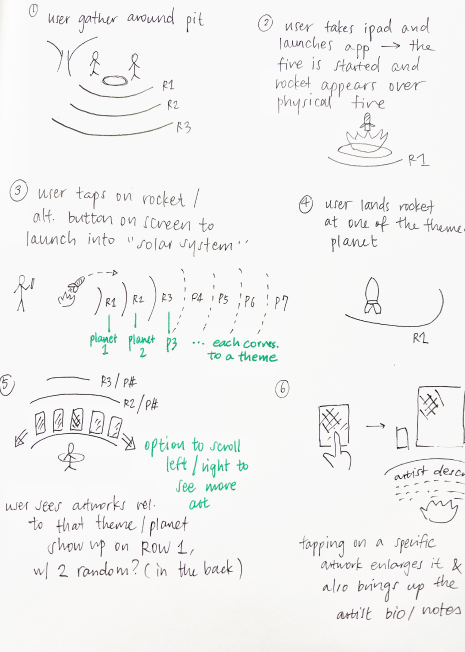 ① user gather around pit
R1
R2
R3
② user takes ipad and
launches app → the
fire is started and
rocket appears over
physical fire
R1
③ user taps on rocket /
alt. button on screen to
launch into "solar system"
R1 R2 R3 P4 P5 P6 P7
planet 1
planet 2
P3
... each corres.
to a theme
④ user lands rocket
at one of the theme
planet
R1
⑤
R3/P#
R2/P#
option to scroll
left/right to
see more
art
user sees artworks rel.
to that theme/planet
show up on ROW 1,
w/ 2 random? (in the back)
⑥
artist descr
tapping on a specific
artwork enlarges it &
also brings up the
artist bio/notes